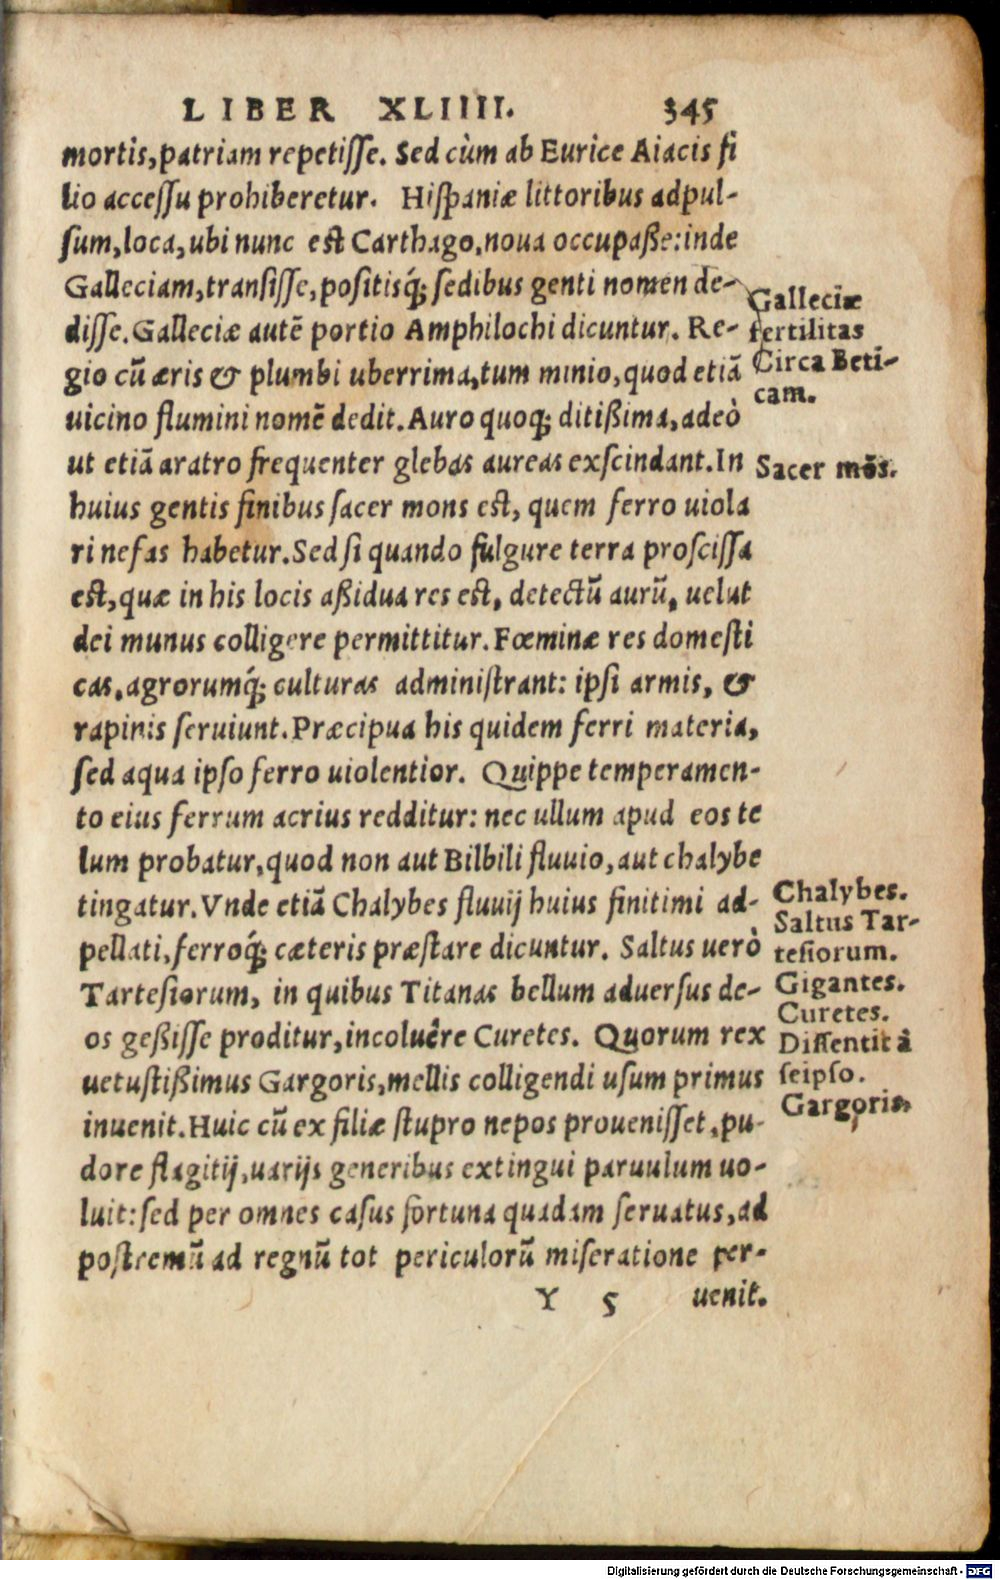 LIBER XLIIII. 345
mortis, patriam repetisse. Sed cùm ab Eurice Aiacis fi
lio accessu prohiberetur. Hispaniæ littoribus adpul-
sum, loca, ubi nunc est Carthago, noua occupaße: inde
Galleciam, transisse, positisq́; sedibus genti nomen de-
disse. Galleciæ autē portio Amphilochi dicuntur. Re-
gio cū æris & plumbi uberrima, tum minio, quod etiā
uicino flumini nomē dedit. Auro quoq; ditißima, adeò
ut etiā aratro frequenter glebas aureas exscindant. In
huius gentis finibus sacer mons est, quem ferro uiola
ri nefas habetur. Sed si quando fulgure terra proscissa
est, quæ in his locis aßidua res est, detectū aurū, uelut
dei munus colligere permittitur. Fœminæ res domesti
cas, agrorumq́; culturas administrant: ipsi armis, &
rapinis seruiunt. Præcipua his quidem ferri materia,
sed aqua ipso ferro uiolentior. Quippe temperamen-
to eius ferrum acrius redditur: nec ullum apud eos te
lum probatur, quod non aut Bilbili fluuio, aut chalybe
tingatur. Vnde etiā Chalybes fluuij huius finitimi ad-
pellati, ferroq́; cæteris præstare dicuntur. Saltus uerò
Tartesiorum, in quibus Titanas bellum aduersus de-
os geßisse proditur, incoluêre Curetes. Quorum rex
uetustißimus Gargoris, mellis colligendi usum primus
inuenit. Huic cū ex filiæ stupro nepos prouenisset, pu-
dore flagitij, uarijs generibus extingui paruulum uo-
luit: sed per omnes casus fortuna quadam seruatus, ad
postremū ad regnū tot periculorū miseratione per-
Y 5 uenit.
Galleciæ
fertilitas
Circa Beti-
cam.
Sacer mōs.
Chalybes.
Saltus Tar-
tesiorum.
Gigantes.
Curetes.
Dissentit â
seipso.
Gargoris.
Digitalisierung gefördert durch die Deutsche Forschungsgemeinschaft - DFG